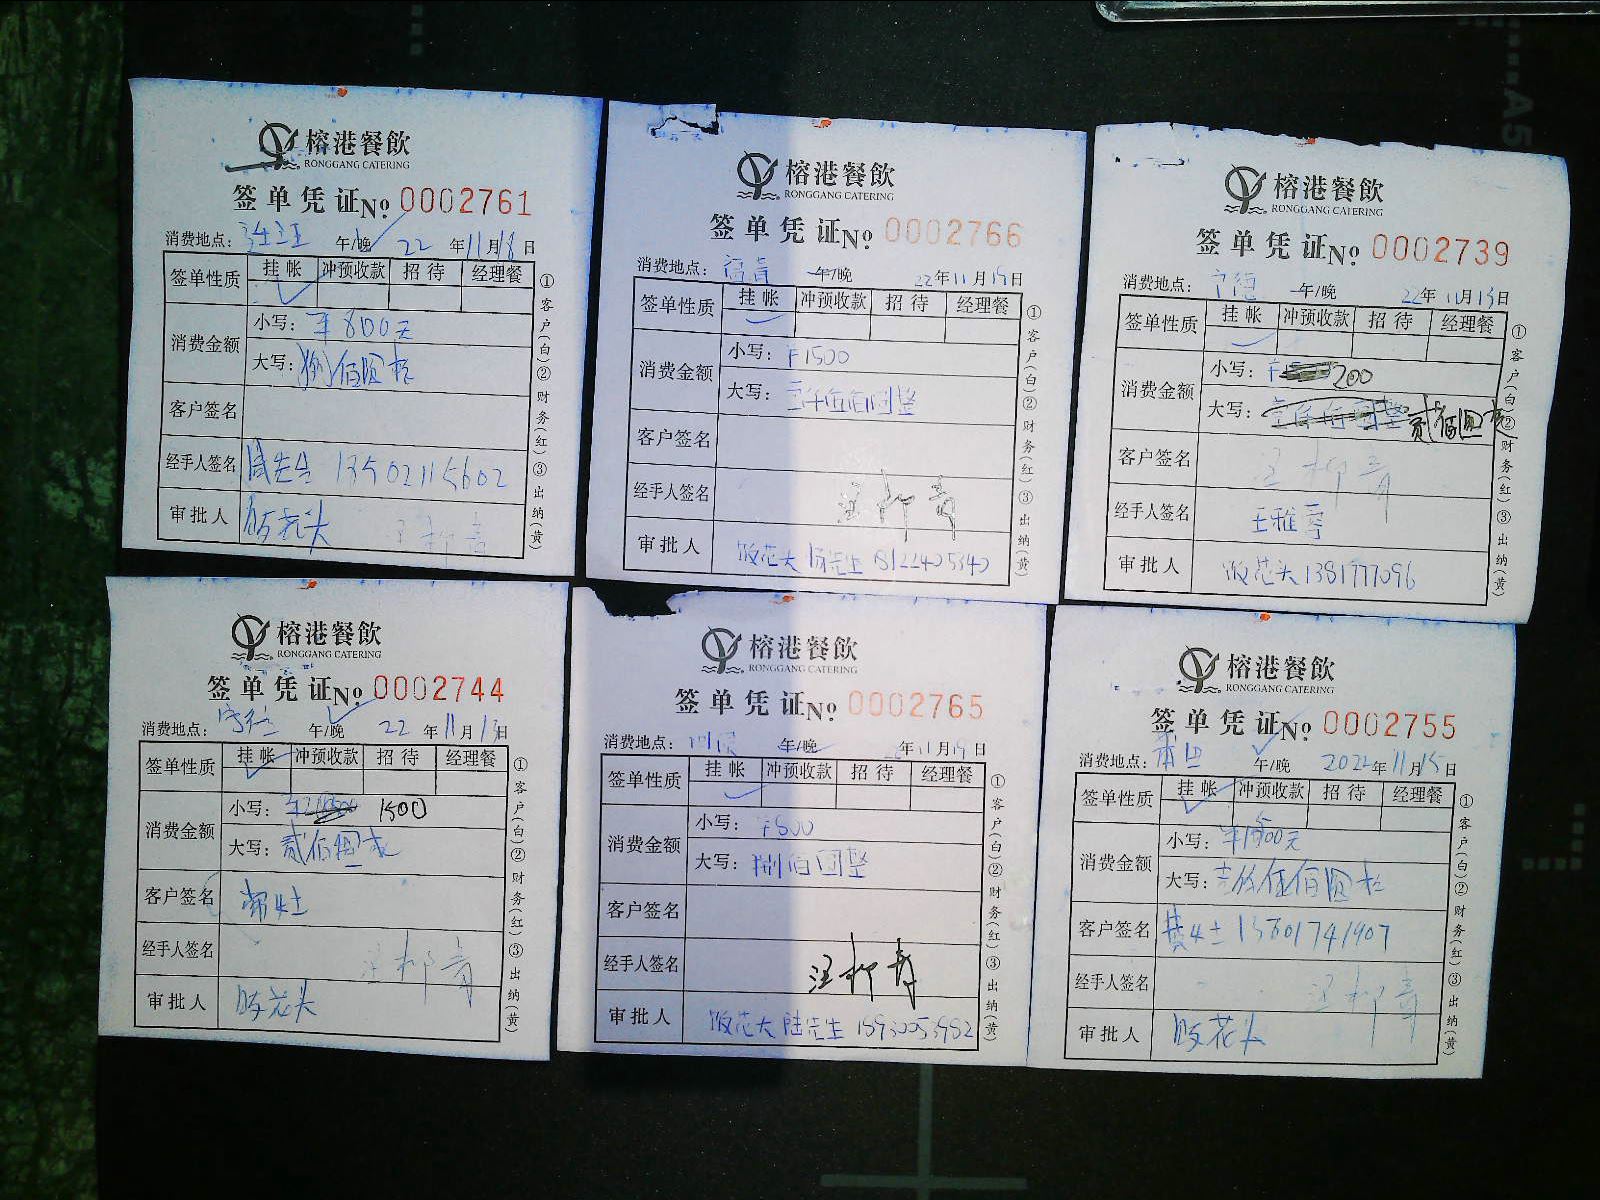 榕港餐飲
RONGGANG CATERING
签单凭证№ 0002761
消费地点： 午/晚 22年11月18日
签单性质 挂帐 冲预收款 招待 经理餐
消费金额 小写：¥800元
大写：捌佰圆
客户签名
经手人签名 周先生 13502115602
审批人
汪柳青
①客户(白)②财务(红)③出纳(黄)
榕港餐飲
RONGGANG CATERING
签单凭证№ 0002766
消费地点：福青 午/晚 22年11月19日
签单性质 挂帐 冲预收款 招待 经理餐
消费金额 小写：¥1500
大写：壹仟伍佰圆整
客户签名
经手人签名 汪柳青
审批人 饭花头 杨先生 18122405340
①客户(白)②财务(红)③出纳(黄)
榕港餐飲
RONGGANG CATERING
签单凭证№ 0002739
消费地点：宁德 午/晚 22年11月13日
签单性质 挂帐 冲预收款 招待 经理餐
消费金额 小写：¥ 200
大写： 贰佰圆
客户签名 汪柳青
经手人签名 王雅
审批人 饭花头 1381977096
①客户(白)②财务(红)③出纳(黄)
榕港餐飲
RONGGANG CATERING
签单凭证№ 0002744
消费地点： 午/晚 22年11月13日
签单性质 挂帐 冲预收款 招待 经理餐
消费金额 小写： 1500
大写：贰佰圆
客户签名
经手人签名 汪柳青
审批人 饭花头
①客户(白)②财务(红)③出纳(黄)
榕港餐飲
RONGGANG CATERING
签单凭证№ 0002765
消费地点： 午/晚 年11月19日
签单性质 挂帐 冲预收款 招待 经理餐
消费金额 小写：¥800
大写：捌佰圆整
客户签名
经手人签名 汪柳青
审批人 饭花头 陆先生 18930053982
①客户(白)②财务(红)③出纳(黄)
榕港餐飲
RONGGANG CATERING
签单凭证№ 0002755
消费地点：莆田 午/晚 2022年11月15日
签单性质 挂帐 冲预收款 招待 经理餐
消费金额 小写：¥1500元
大写：壹仟伍佰圆
客户签名 黄女士 13801741907
经手人签名 汪柳青
审批人 饭花头
①客户(白)②财务(红)③出纳(黄)